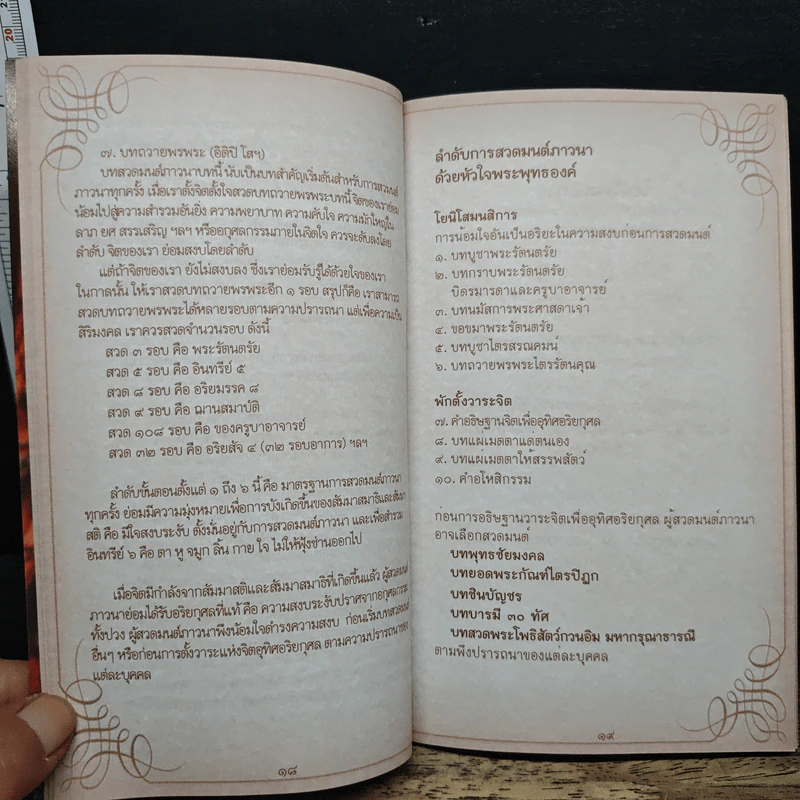 20
๗. บทถวายพรพระ (อิติปิ โสฯ)
บทสวดมนต์ภาวนาบทนี้ นับเป็นบทสำคัญเริ่มต้นสำหรับการสวดมนต์
ภาวนาทุกครั้ง เมื่อเราตั้งจิตตั้งใจสวดบทถวายพรพระบทนี้ จิตของเราย่อม
น้อมไปสู่ความสำรวมอันยิ่ง ความพยาบาท ความคับใจ ความมักใหญ่ใน
ลาภ ยศ สรรเสริญ ฯลฯ หรืออกุศลกรรมภายในจิตใจ ควรจะดับลงโดย
ลำดับ จิตของเรา ย่อมสงบโดยลำดับ
แต่ถ้าจิตของเรา ยังไม่สงบลง ซึ่งเราย่อมรับรู้ได้ด้วยใจของเรา
ในกาลนั้น ให้เราสวดบทถวายพรพระอีก ๑ รอบ สรุปก็คือ เราสามารถ
สวดบทถวายพรพระได้หลายรอบตามความปรารถนา แต่เพื่อความเป็น
สิริมงคล เราควรสวดจำนวนรอบ ดังนี้
สวด ๓ รอบ คือ พระรัตนตรัย
สวด ๕ รอบ คือ อินทรีย์ ๕
สวด ๘ รอบ คือ อริยมรรค ๘
สวด ๙ รอบ คือ ฌานสมาบัติ
สวด ๑๐๘ รอบ คือ ของครูบาอาจารย์
สวด ๓๒ รอบ คือ อริยสัจ ๔ (๓๒ รอบอาการ) ฯลฯ
ลำดับขั้นตอนตั้งแต่ ๑ ถึง ๖ นี้ คือ มาตรฐานการสวดมนต์ภาวนา
ทุกครั้ง ย่อมมีความมุ่งหมายเพื่อการบังเกิดขึ้นของสัมมาสมาธิและสัมมา
สติ คือ มีใจสงบระงับ ตั้งมั่นอยู่กับการสวดมนต์ภาวนา และเพื่อสำรวม
อินทรีย์ ๖ คือ ตา หู จมูก ลิ้น กาย ใจ ไม่ให้ฟุ้งซ่านออกไป
เมื่อจิตมีกำลังจากสัมมาสติและสัมมาสมาธิที่เกิดขึ้นแล้ว ผู้สวดมนต์
ภาวนาย่อมได้รับอริยกุศลที่แท้ คือ ความสงบระงับปราศจากอกุศลกรรม
ทั้งปวง ผู้สวดมนต์ภาวนาพึงน้อมใจดำรงความสงบ ก่อนเริ่มบทสวดมนต์
อื่นๆ หรือก่อนการตั้งวาระแห่งจิตอุทิศอริยกุศล ตามความปรารถนาของ
แต่ละบุคคล
๑๘
ลำดับการสวดมนต์ภาวนา
ด้วยหัวใจพระพุทธองค์
โยนิโสมนสิการ
การน้อมใจอันเป็นอริยะในความสงบก่อนการสวดมนต์
๑. บทบูชาพระรัตนตรัย
๒. บทกราบพระรัตนตรัย
บิดรมารดาและครูบาอาจารย์
๓. บทนมัสการพระศาสดาเจ้า
๔. ขอขมาพระรัตนตรัย
๕. บทบูชาไตรสรณคมน์
๖. บทถวายพรพระไตรรัตนคุณ
พักตั้งวาระจิต
๗. คำอธิษฐานจิตเพื่ออุทิศอริยกุศล
๘. บทแผ่เมตตาแด่ตนเอง
๙. บทแผ่เมตตาให้สรรพสัตว์
๑๐. คำอโหสิกรรม
ก่อนการอธิษฐานวาระจิตเพื่ออุทิศอริยกุศล ผู้สวดมนต์ภาวนา
อาจเลือกสวดมนต์
บทพุทธชัยมงคล
บทยอดพระกัณฑ์ไตรปิฎก
บทชินบัญชร
บทบารมี ๓๐ ทัศ
บทสวดพระโพธิสัตว์กวนอิม มหากรุณาธารณี
ตามพึงปรารถนาของแต่ละบุคคล
๑๙